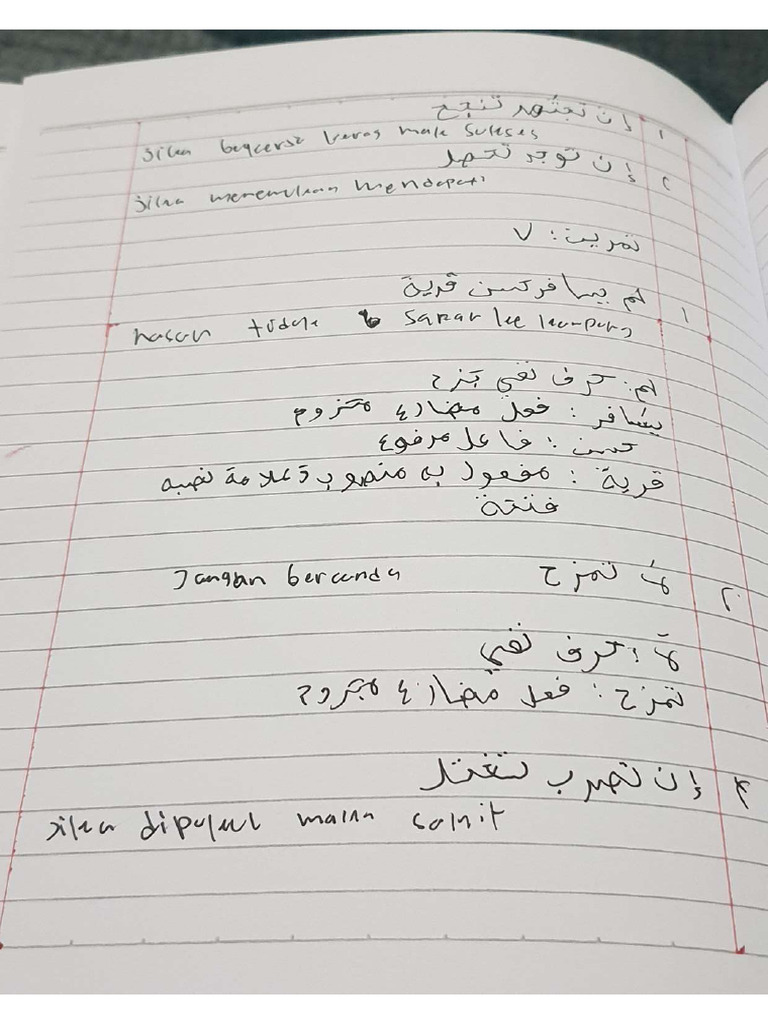 ١ إن تجتهد تنجح
jika bekerja keras maka sukses
٢ إن توجد تحصد
jika menemukan mendapati
تمرين : ٧
١ لم يسافر حسن قرية
hasan tidak safar ke kampung
لم : حرف نفي جزم
يسافر : فعل مضارع مجزوم
حسن : فاعل مرفوع
قرية : مفعول به منصوب وعلامة نصبه
فتحة
٢ لا تمزح Jangan bercanda
لا : حرف نفي
تمزح : فعل مضارع مجزوم
إن تضرب
jika dipukul maka sakit